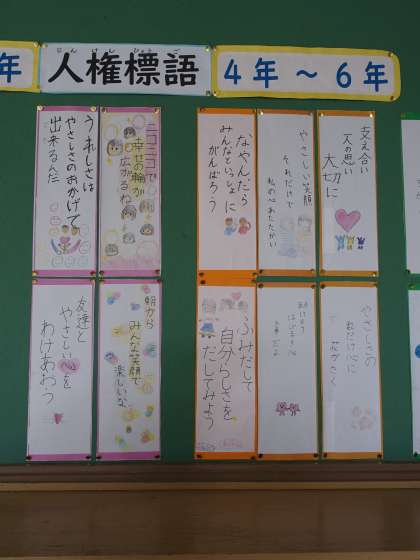 年
じんけんひょうご
人権標語
4年～6年
支え合い
人の思い
大切に
やさしい笑顔
それだけで
私の心あたたかい
なやんだら
みんなといっしょに
がんばろう
ニコニコで
幸せの輪が
広がるね
うれしさは
やさしさのおかげで
出来るんだ
やさしさの
数だけ心に
花がさく
ふみだして
自分らしさを
だしてみよう
朝から
みんな笑顔で
楽しいな
友達と
やさしい心を
わけあおう